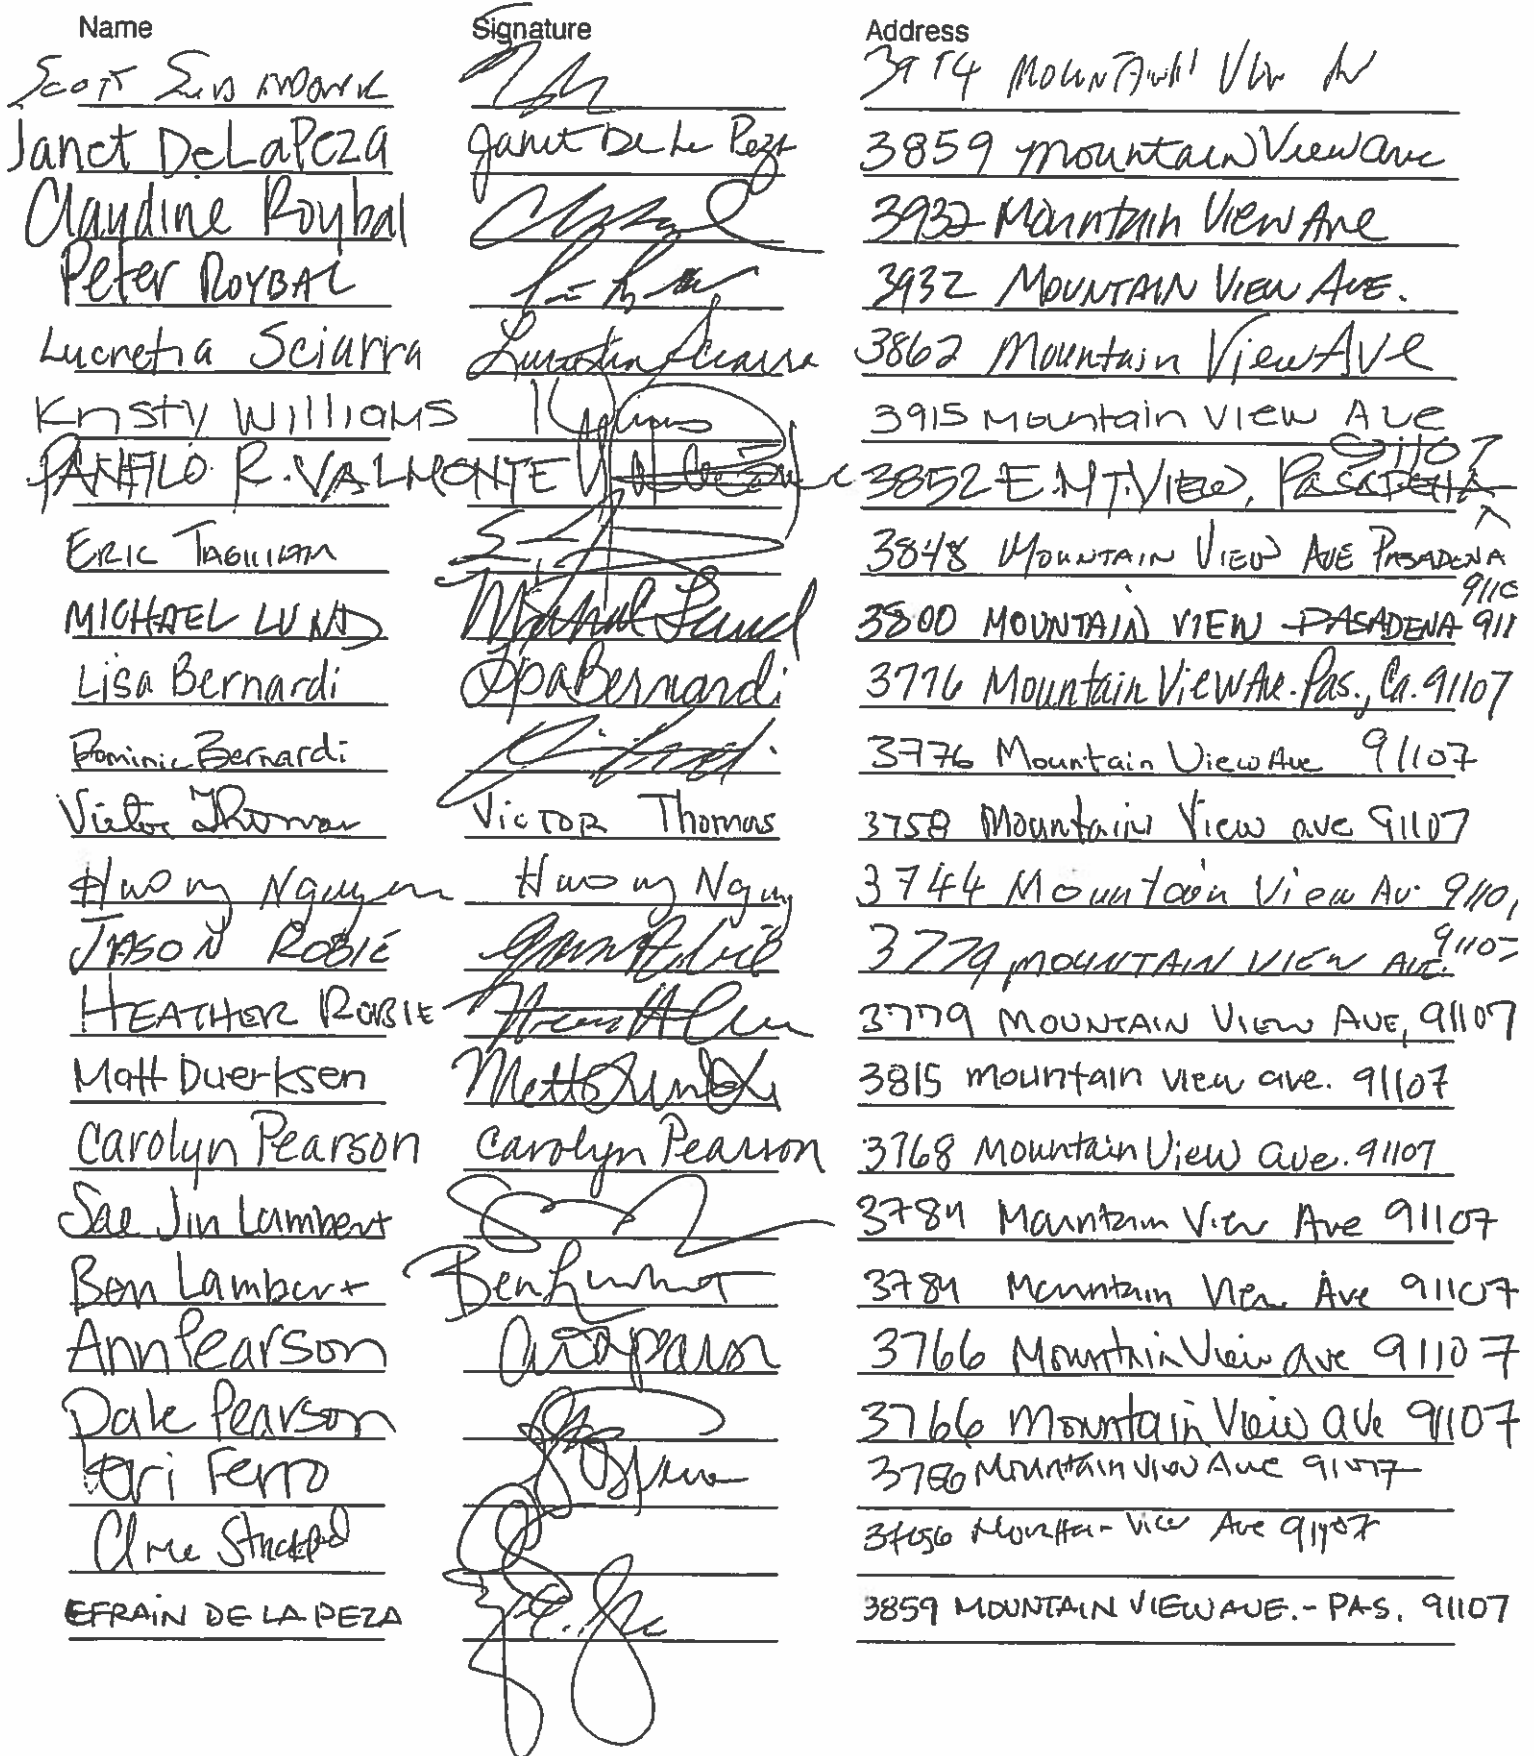 Name Signature Address
Scott 3914 Mountain View
Janet DeLaPeza Janet De La Peza 3859 Mountain View ave
Claudine Roybal 3932 Mountain View Ave
Peter ROYBAL 3932 MOUNTAIN VIEW AVE.
Lucretia Sciarra Lucretia Sciarra 3862 Mountain View AVe
Kristy Williams 3915 Mountain View Ave
PANFILO R. VALMONTE 3852 E. MT. VIEW, PASADENA 91107
ERIC 3848 MOUNTAIN VIEW AVE PASADENA
MICHAEL LUND Michael Lund 3800 MOUNTAIN VIEW - PASADENA 911
Lisa Bernardi Lisa Bernardi 3776 Mountain View Ave. Pas., Ca. 91107
Dominic Bernardi 3776 Mountain View Ave 91107
Victor Thomas Victor Thomas 3758 Mountain View ave 91107
Nguyen 3744 Mountain View Av
JASON ROBIE 3779 MOUNTAIN VIEW AVE. 91107
HEATHER ROBIE 3779 MOUNTAIN VIEW AVE, 91107
Matt Duerksen 3815 mountain view ave. 91107
Carolyn Pearson Carolyn Pearson 3768 Mountain View ave. 91107
Sae Jin Lambert 3784 Mountain View Ave 91107
Ben Lambert Ben Lambert 3784 Mountain View Ave 91107
Ann Pearson 3766 Mountain View ave 91107
Dale Pearson 3766 Mountain View ave 91107
Ferro Mountain View Ave 91107
Mountain View Ave 91107
EFRAIN DE LA PEZA 3859 MOUNTAIN VIEW AVE. - PAS. 91107